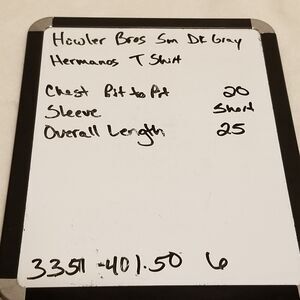 Howler Bros Sm Dk Gray
Hermanos T Shirt
Chest Pit to Pit 20
Sleeve Short
Overall Length 25
6